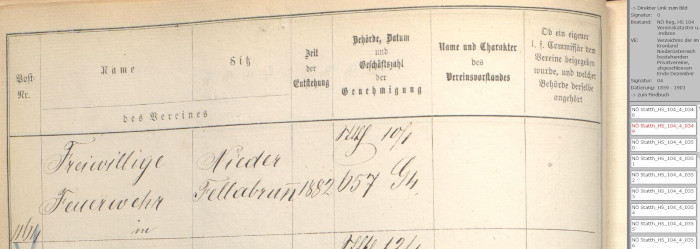 Post-
Nr.
Name
Sitz
des Vereines
Zeit
der
Entstehung
Behörde, Datum
und
Geschäftszahl
der
Genehmigung
Name und Charakter
des
Vereinsvorstandes
Ob ein eigener
l. f. Commissär dem
Vereine beigegeben
wurde, und welcher
Behörde derselbe
angehört
Freiwillige
Feuerwehr
in
Nieder
Fellabrunn
1882
10/1
657
-> Direkter Link zum Bild
Signatur: 0
Bestand: NÖ Reg, HS 104
Vereinskataster u.
-indizes
VE: Verzeichnis der im
Kronland
Niederösterreich
bestehenden
Privatvereine,
abgeschlossen
Ende Dezember
Signatur: 04
Datierung: 1859 - 1903
-> zum Findbuch
NÖ Statth_HS_104_4_034
NÖ Statth_HS_104_4_034
9
NÖ Statth_HS_104_4_035
0
NÖ Statth_HS_104_4_035
1
NÖ Statth_HS_104_4_035
2
NÖ Statth_HS_104_4_035
3
NÖ Statth_HS_104_4_035
4
NÖ Statth_HS_104_4_035
5
NÖ Statth_HS_104_4_035